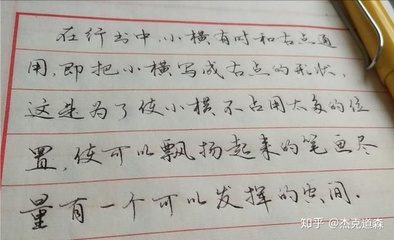 在行书中，小横有时和右点通
用，即把小横写成右点的形状，
这是为了使小横不占用太多的位
置，使可以飘扬起来的笔画尽
量有一个可以发挥的空间.
知乎 @杰克道森